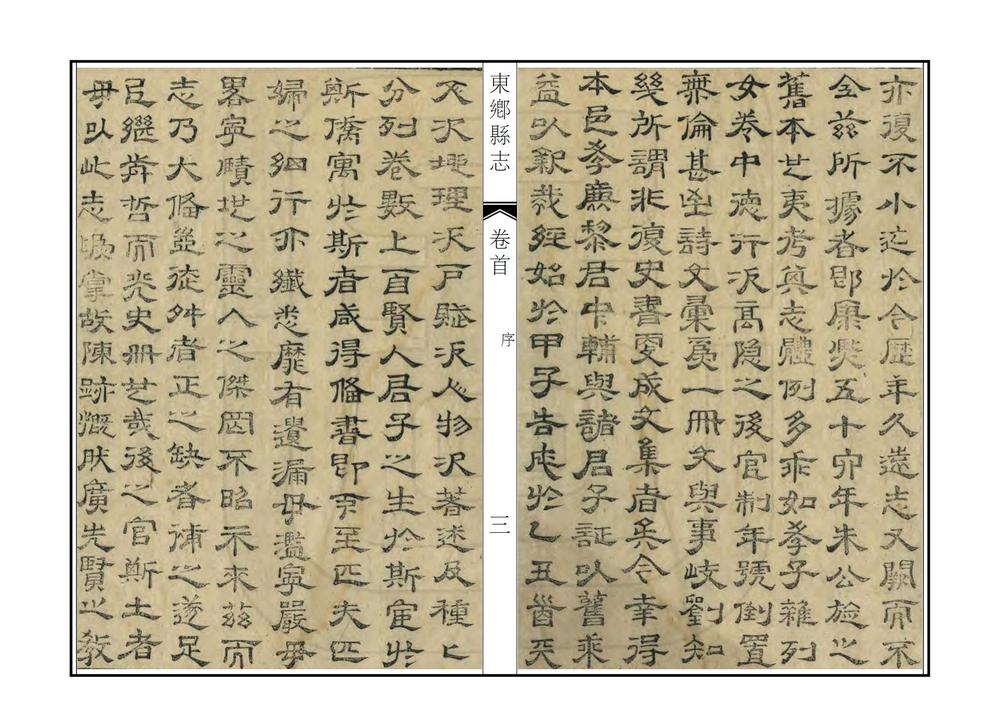 亦復不小迄於今歷年久遠志又闕而不
全茲所據者即康熙五十卯年朱公旋之
舊本也夷考其志體例多乖如孝子雜列
女卷中德行次高隱之後官制年號倒置
無倫甚至詩文彙爲一冊文與事歧劉知
幾所謂非復史書更成文集者矣今幸得
本邑孝廉黎君中輔與諸君子証以舊乘
益以新裁經始於甲子告成於乙丑首天
東鄉縣志
卷首
序
三
文次地理次戶賦次人物次著述及種匕
分列卷數上自賢人君子之生於斯宦於
斯僑寓於斯者咸得備書即下至匹夫匹
婦之細行亦纖悉靡有遺漏毋濫寧嚴毋
畧寧賾地之靈人之傑罔不昭示來茲而
志乃大備並從舛者正之缺者補之遂足
㠯繼前哲而光史冊也哉後之官斯土者
毋以此志爲掌故陳跡慨然廣先賢之教